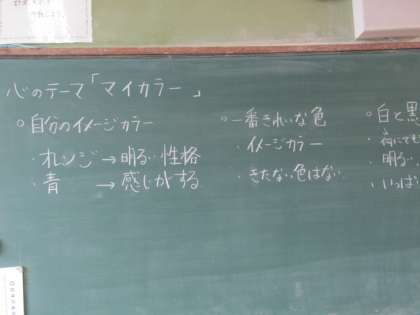 心のテーマ「マイカラー」
○自分のイメージカラー
・オレンジ→明るい性格
・青 →感じがする
○一番きれいな色
・イメージカラー
・きたない色はない
○白と黒
・何にでも
明る
・いっぱ